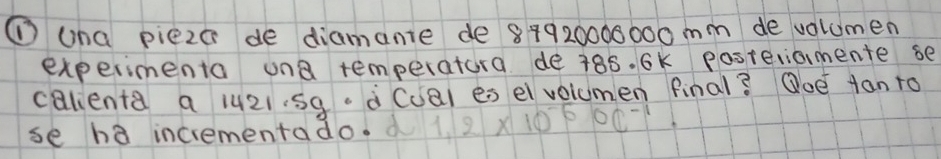 ① Una pieza de diamante de 8792000000 mm de volumen
experimenta una temperatura de 785.6K posteriormente se
calienta a 1421.5g. ¿Cual es el volumen final? Que tanto
se ha incrementado. α 1,2 x 10⁻⁶ °C⁻¹.